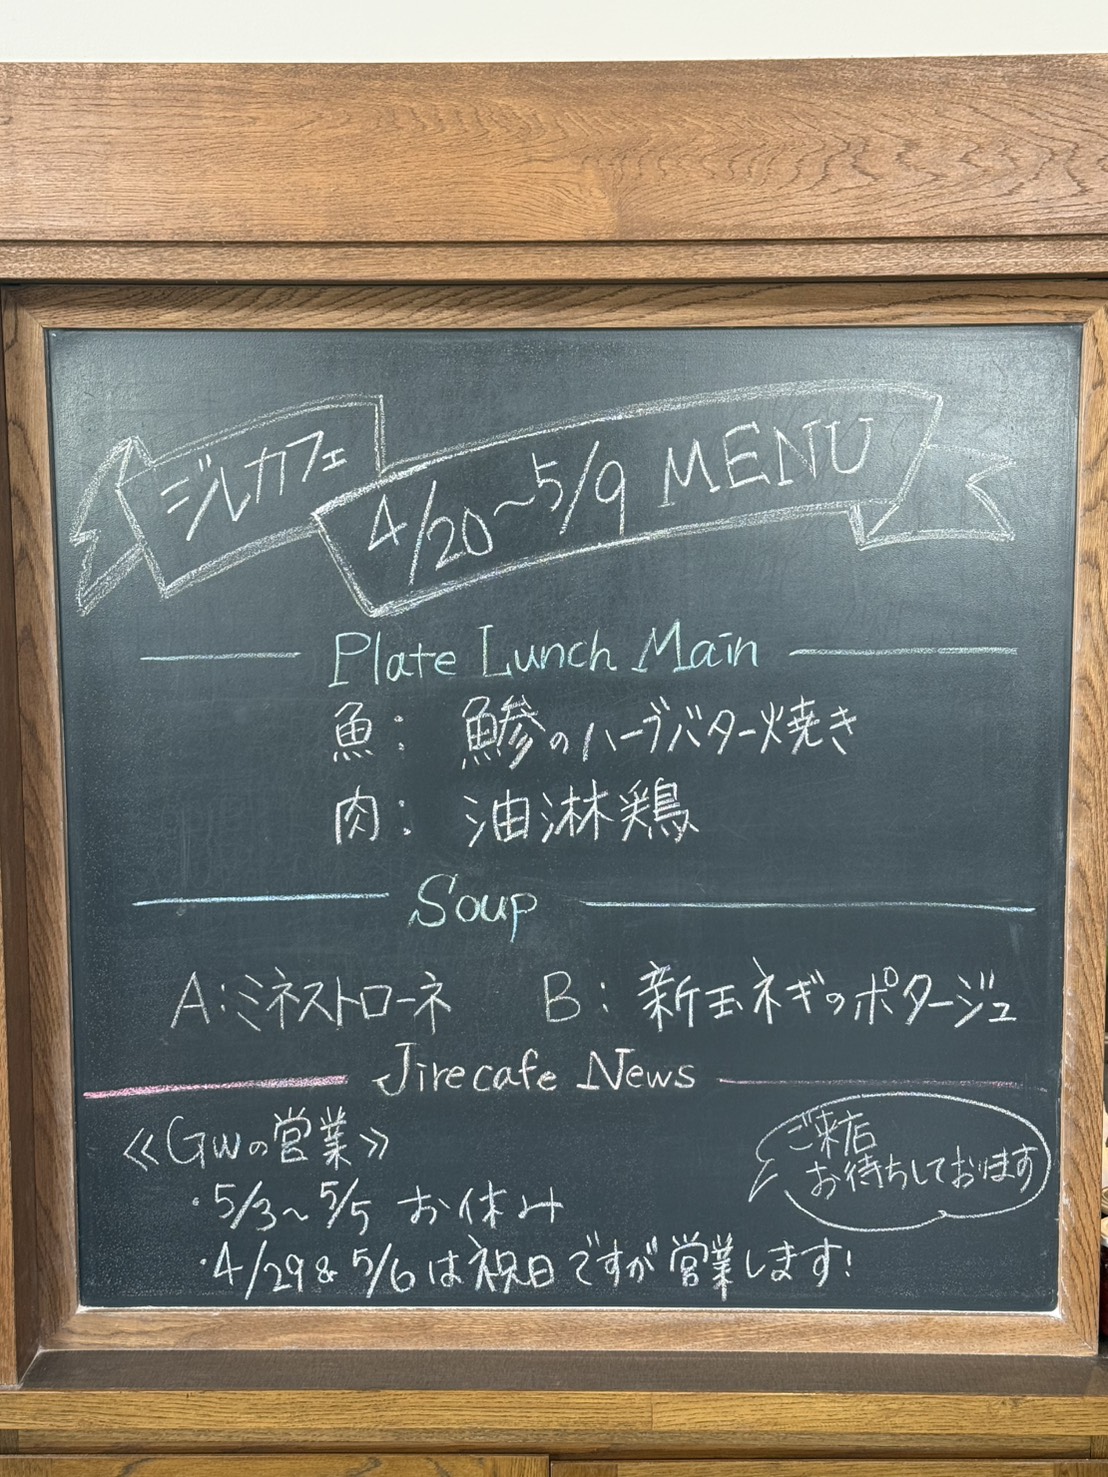 ジルカフェ
4/20〜5/9 MENU
Plate Lunch Main
魚： 鯵のハーブバター焼き
肉： 油淋鶏
Soup
A：ミネストローネ B：新玉ネギのポタージュ
Jirecafe News
≪GWの営業≫
・5/3〜5/5 お休み
・4/29&5/6は祝日ですが営業します!
ご来店
お待ちしております